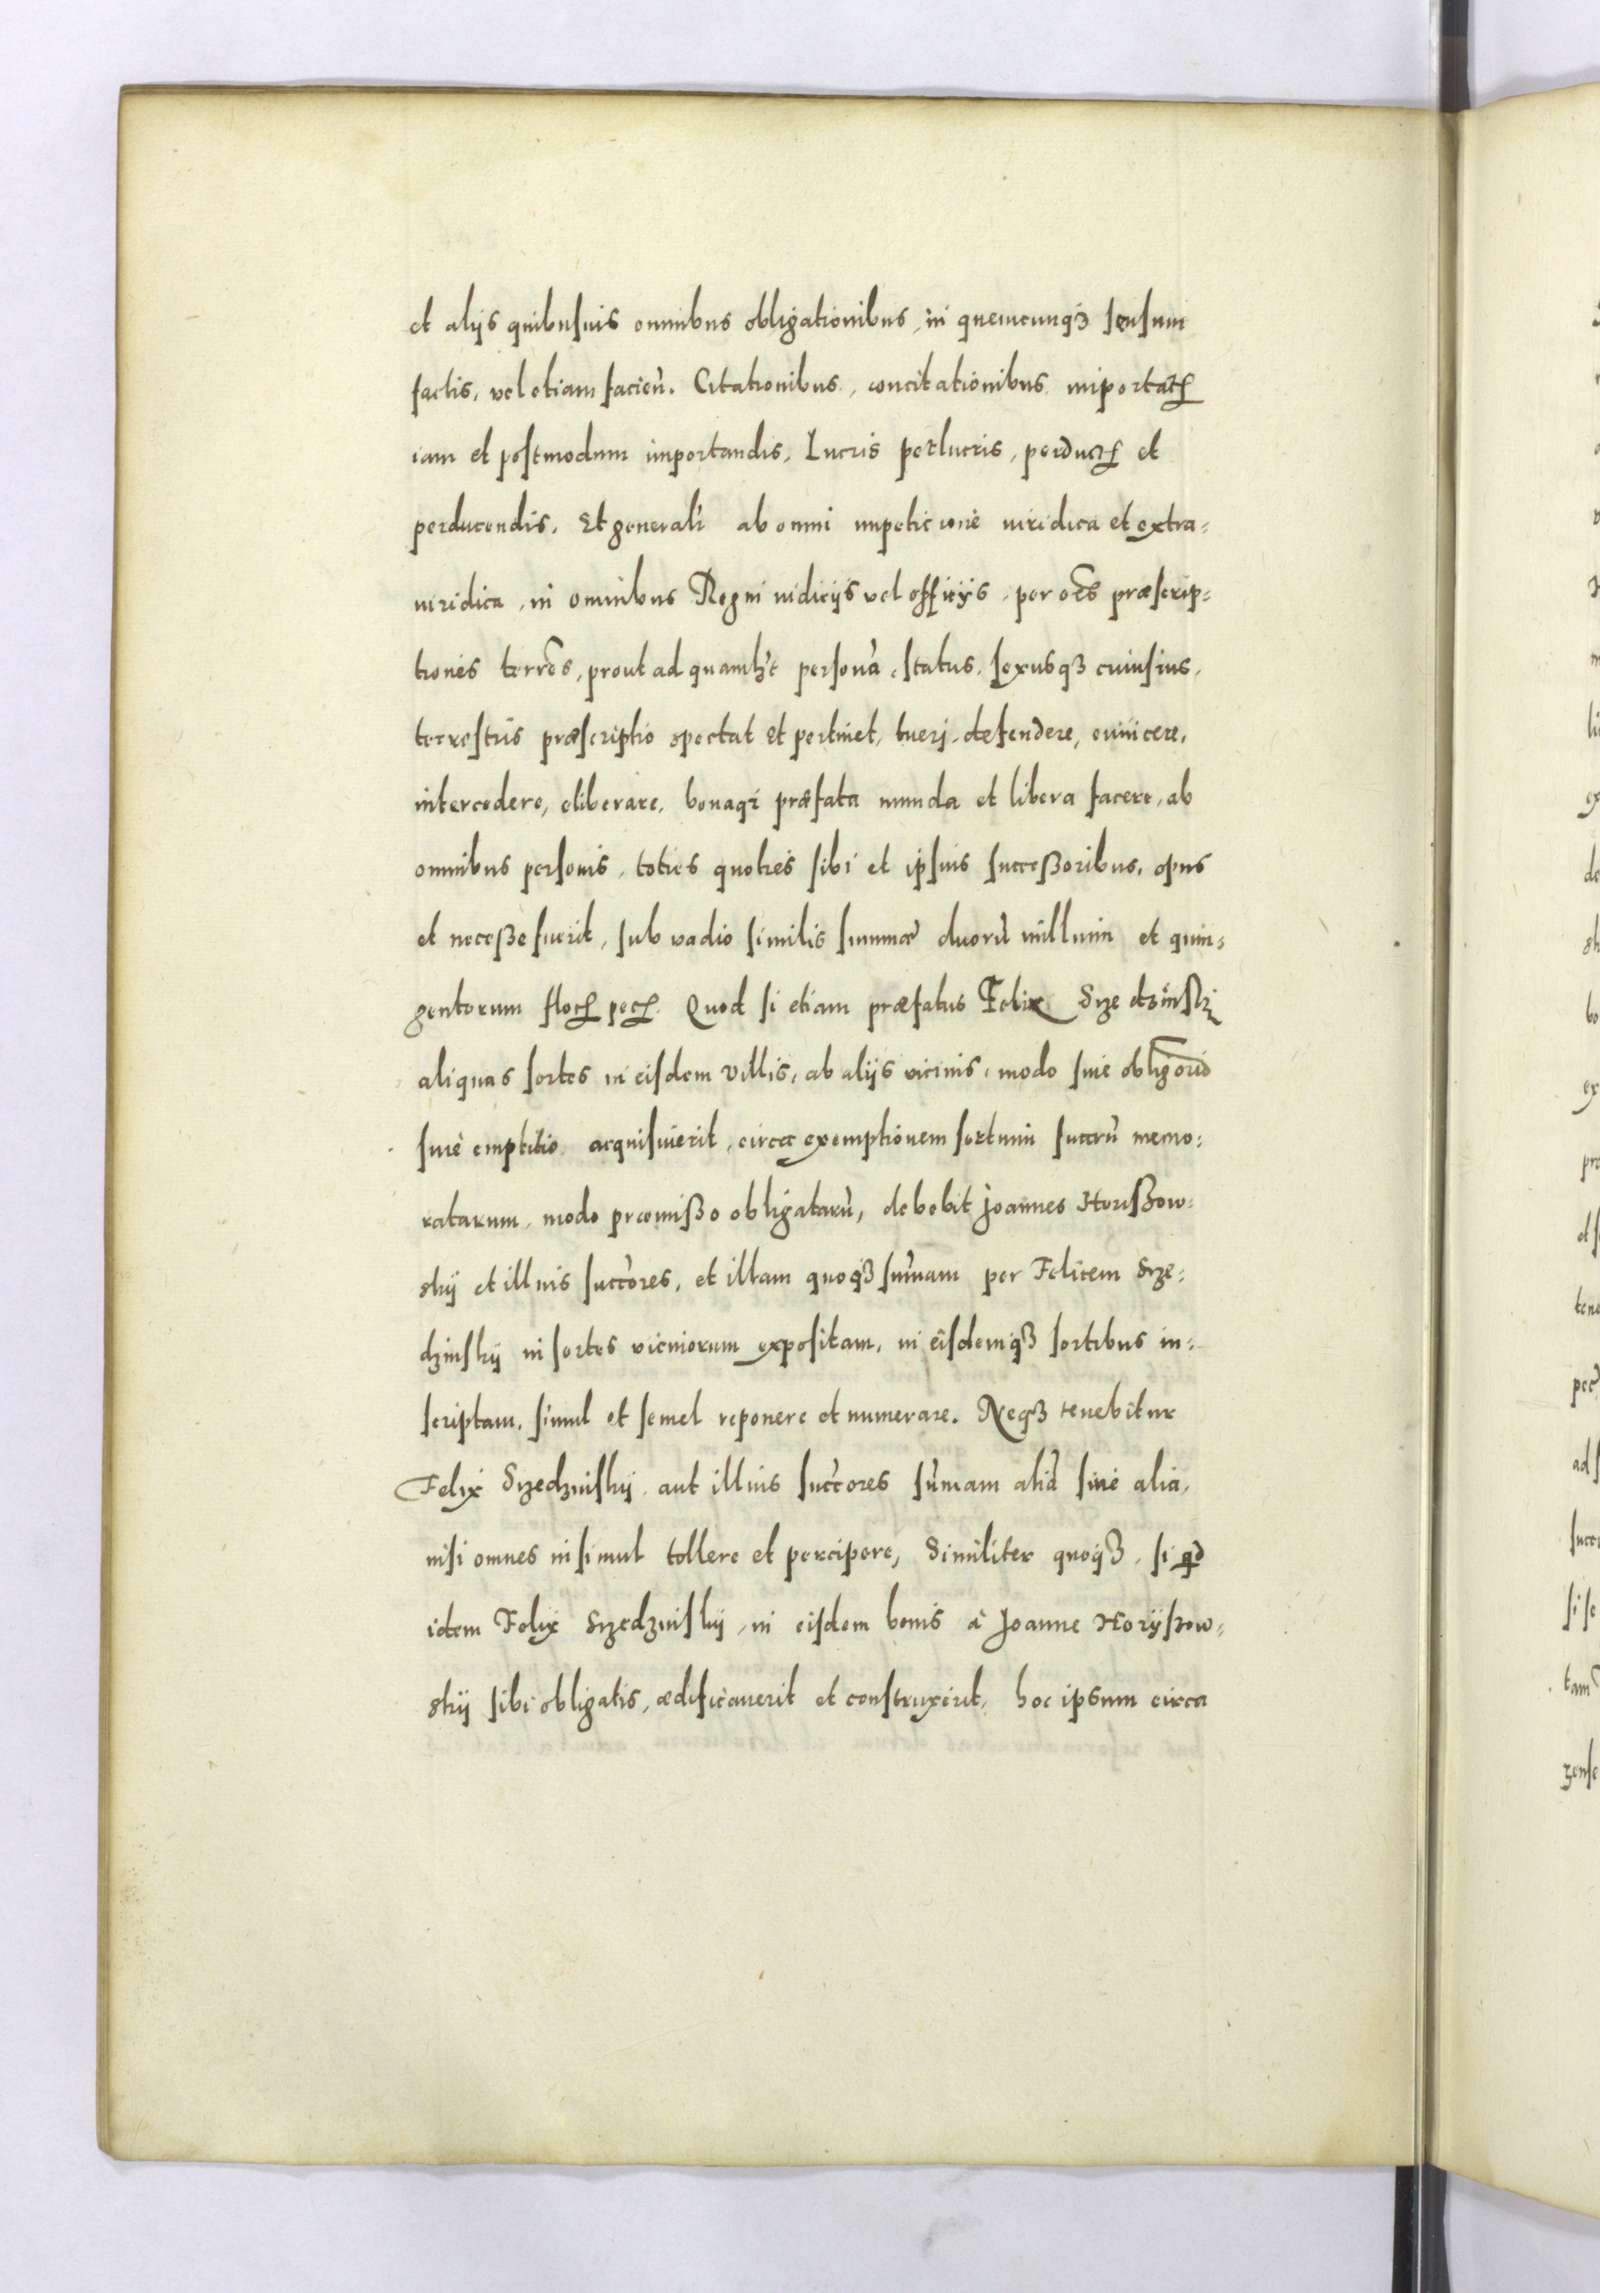 et alijs quibusuis omnibus obligationibus, in quemcunq3 sensum
factis, vel etiam facien̄. Citationibus, concitationibus importat
iam et postmodum importandis, Lucris perlucris, perduct et
perducendis. Et general̄r ab omni impeticione iuridica et extra=
iuridica, in omnibus Regni iudicijs vel officijs, per oēs præscrip=
tiones terr̄es, prout ad quamlʒt personā, status, sexusq3 cuiusuis,
terrestris præscriptio spectat et pertinet, tueri, defendere, euincere,
intercedere, eliberare, bonaq3 præfata munda et libera facere, ab
omnibus personis, toties quoties sibi et ipsius successoribus, opus
et necesse fuerit, sub vadio similis summæ duorū millium et quin=
gentorum flor pec. Quod si etiam præfatus Felix Szedzinski
aliquas sortes in eisdem villis, ab alijs vicinis, modo siue oblig̅orio
siue emptitio acquisiuerit, circa exemptionem sortium suarū memo=
ratarum, modo præmisso obligatarū, debebit Joannes Horissow=
skij et illius succ̄ores, et illam quoq3 sum̄am per Felicem Sze=
dzinskij in sortes vicinorum expositam, in eisdemq3 sortibus in=
scriptam, simul et semel reponere et numerare. Neq3 tenebitur
Felix Szedzinskij, aut illius succ̄ores sum̄am aliā siue alia,
nisi omnes insimul tollere et percipere, Similiter quoq3, si qd
idem Felix Szedzinskij, in eisdem bonis à Joanne Horyszow=
skij sibi obligatis, ædificauerit et construxerit, hoc ipsum circa